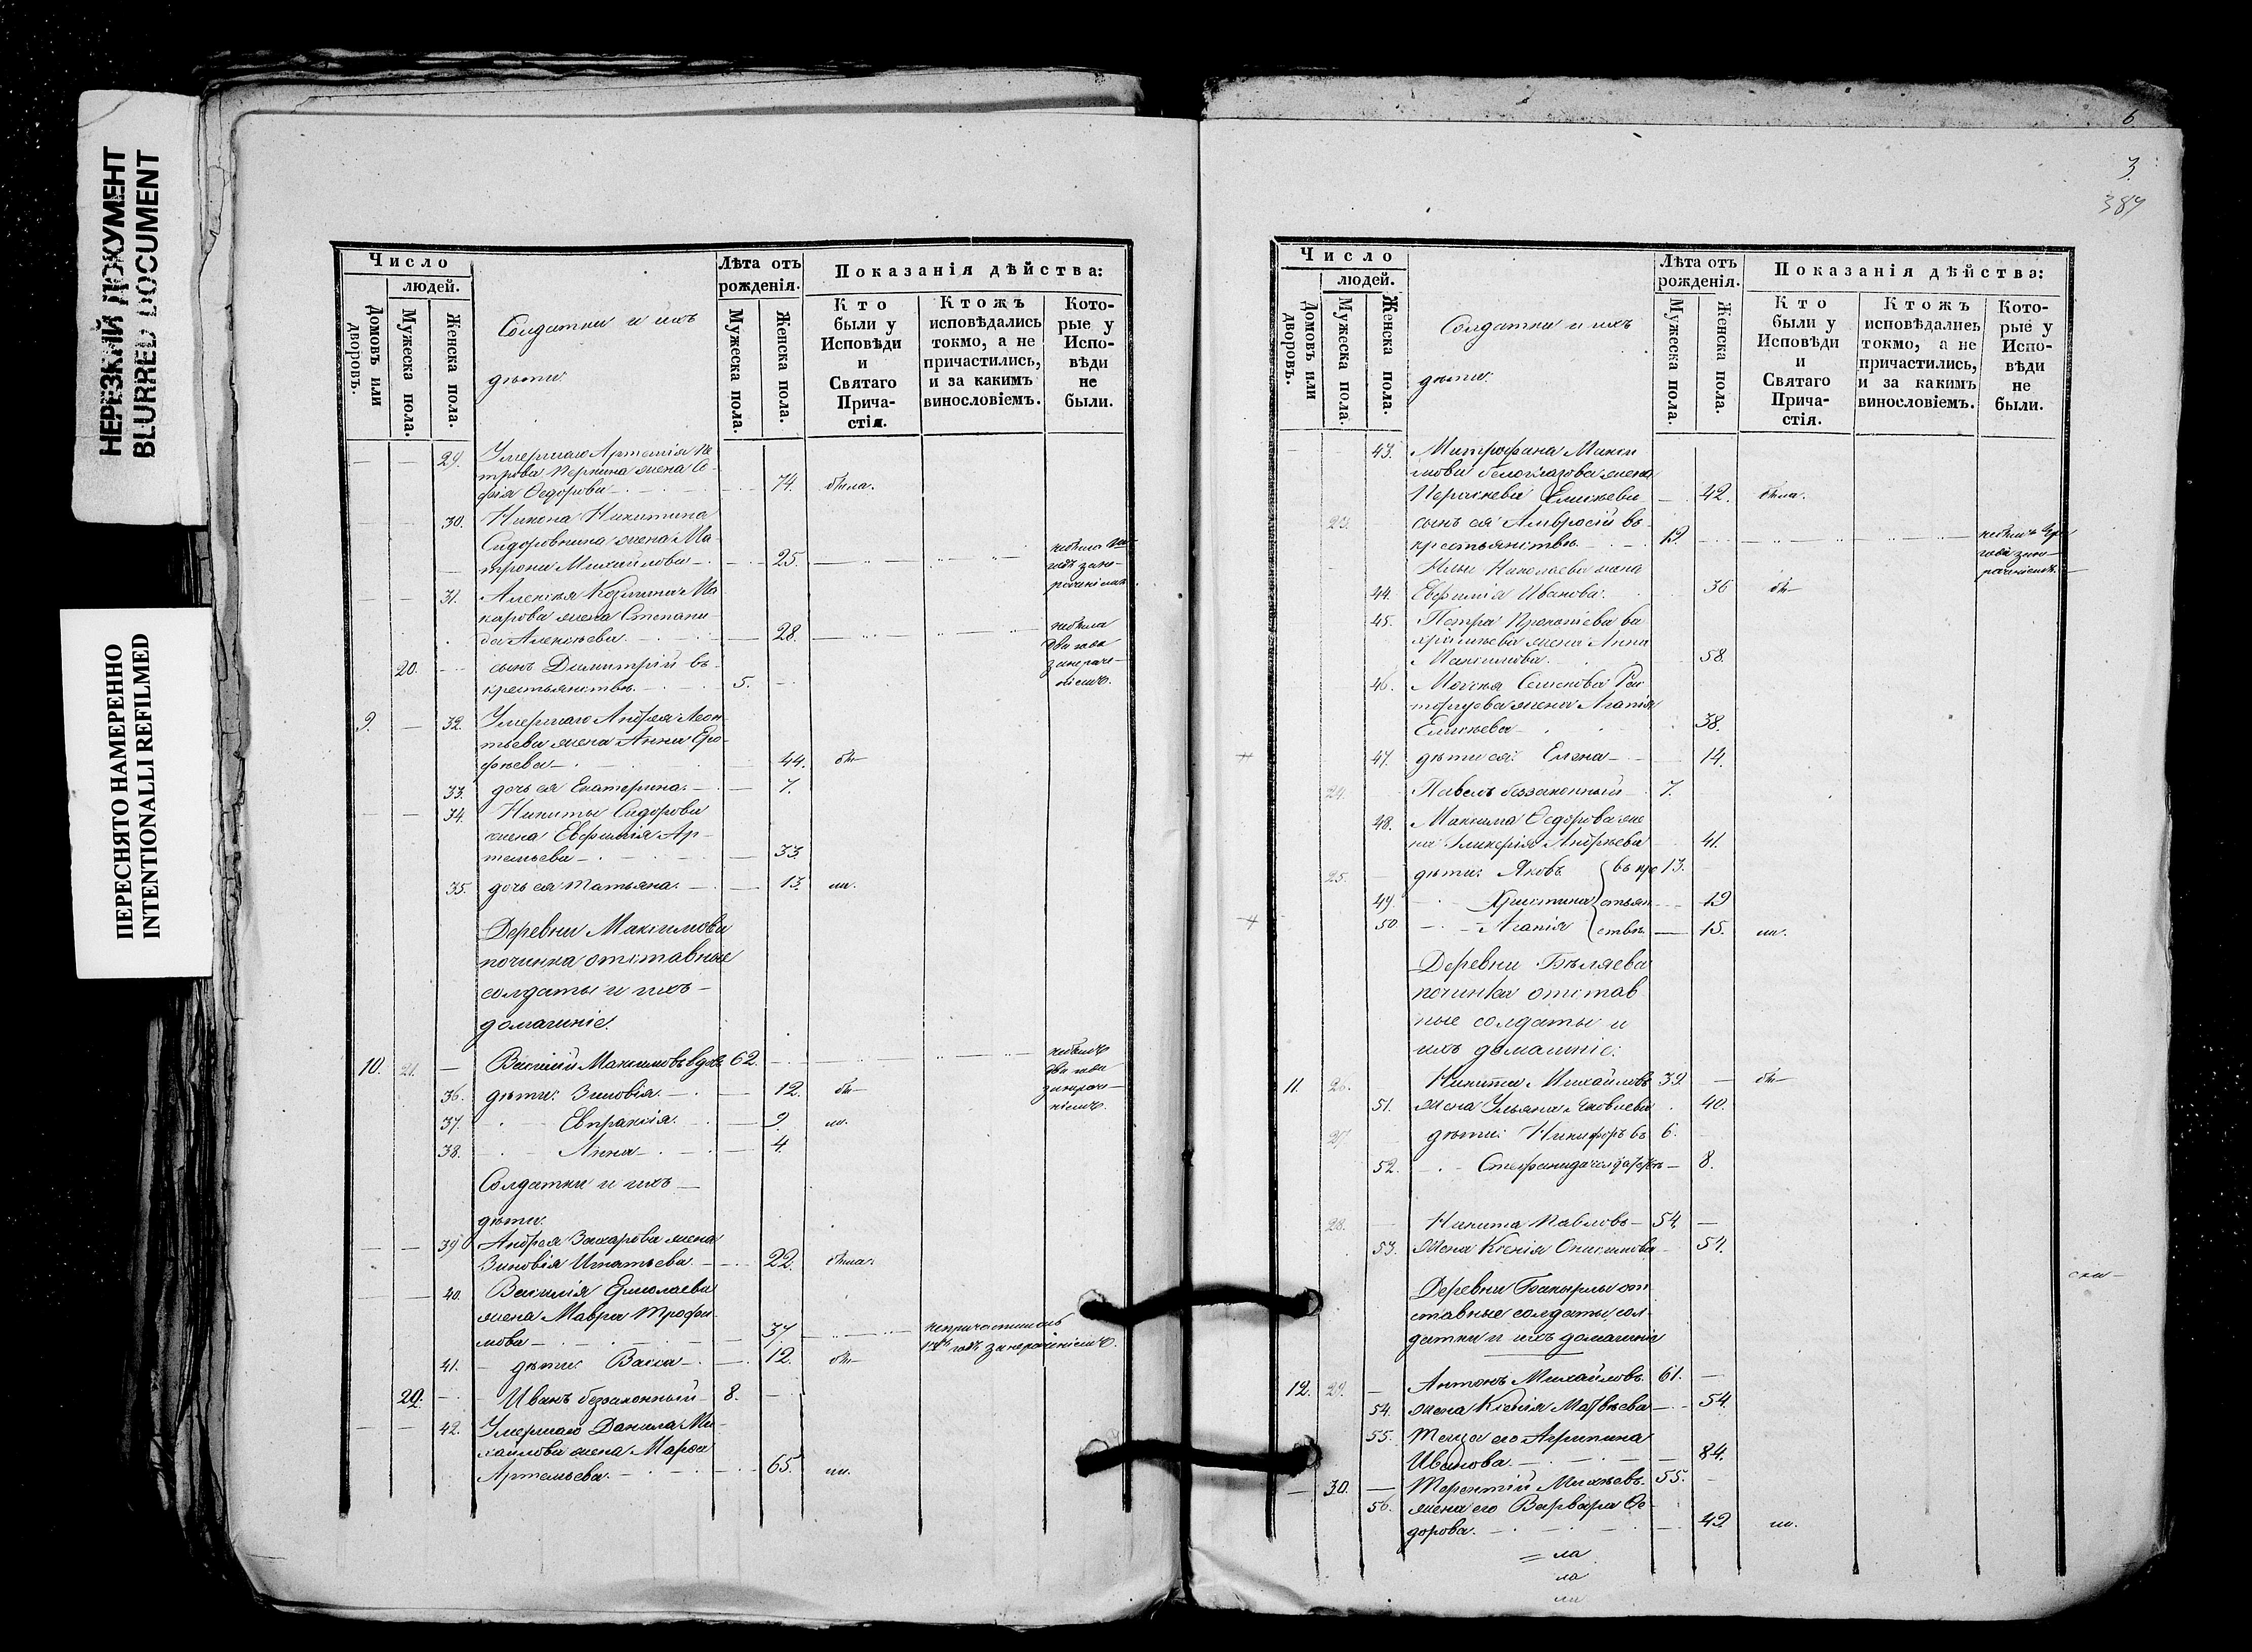 НЕРЕЗКИЙ ДОКУМЕНТ
BLURRED DOCUMENT
ПЕРЕСНЯТО НАМЕРЕННО
INTENTIONALLI REFILMED
Число
людей.
Домовъ или дворовъ.
Мужеска пола.
Женска пола.
Солдатки и ихъ
дѣти.
Лѣта отъ рожденія.
Мужеска пола.
Женска пола.
Показанія дѣйства:
Кто были у Исповѣди и Святаго Прича-стія.
Ктожъ исповѣдались токмо, а не причастились, и за какимъ винословіемъ.
Кото-рые у Испо-вѣди не были.
29. Умершаго Артемія Пе
трова Перкина жена Со
фія Ѳедорова 74. была.
30. Никона Никитина
Сидоровнина жена Ма-
трона Михайлова 25.
31. Алексѣя Козмина Ма
карова жена Степани
да Алексѣева 28. небыла
два года
20. сынъ Димитрій въ
крестьянствѣ 5.
9. 32. Умершаго Андрея Леон
тьева жена Анна Еро-
фѣева 44. бы
33. дочь ея Екатерина 7.
34. Никиты Сидорова
жена Евфимія Ар-
темьева 33
35. дочь ея Татьяна 13.
Деревни Максимова
починка отставные
солдаты и ихъ
домашніе.
10. 21. Василій Максимовъ вдовъ 62.
два года
36. дѣти: Зиновія 12. бы
37. Евпраксія 9.
38. Анна 4.
Солдатки и ихъ
дѣти.
39 Андрея Захарова жена
Зиновія Игнатьева 22. была.
40. Василія Ермолаева
жена Мавра Трофи
мова 37.
41. дѣти: Васса 12. бы
22. Иванъ беззаконный 8.
42. Умершаго Данила Ми-
хайлова жена Марѳа
Артемьева 65.
6
3.
387
Число
людей.
Домовъ или дворовъ.
Мужеска пола.
Женска пола.
Солдатки и ихъ
дѣти.
Лѣта отъ рожденія.
Мужеска пола.
Женска пола.
Показанія дѣйства:
Кто были у Исповѣди и Святаго Прича-стія.
Ктожъ исповѣдались токмо, а не причастились, и за какимъ винословіемъ.
Кото-рые у Испо-вѣди не были.
43. Митрофана Макси
мова Белоглазова жена
Параскева Елисѣева 42. была.
23. сынъ ея Амвросій въ
крестьянствѣ 19.
Ильи Николаева жена
44. Евфимія Иванова 36 бы
45. Петра Прокопіева
жена Анна
Максимова 58.
46. Моисея Семенова Рас
торгуева жена Агапія
Елисѣева 38.
47. дѣти ея: Елена 14.
24. Павелъ беззаконный 7.
48. Максима Ѳедорова же
на Гликерія Андреева 41.
25. дѣти: Яковъ въ кре 13.
49. Христина стьян 19
50. Агапія ствѣ 15.
Деревни Бѣляева
починка отстав
ные солдаты и
ихъ домашніе:
11. 26. Никита Михайловъ 39. бы
51. жена Ульяна Яковлева 40.
27. дѣти: Никифоръ въ 6.
52. Стефанида 8.
28. Никита Павловъ 54.
53. жена Ксенія Онисимова 51.
Деревни Бакырлы от
ставные солдаты, сол-
датки и ихъ домашніе
12. 29. Антонъ Михайловъ 61.
54. жена Ксенія Матвѣева 54.
55. теща его Агрипина
Иванова 84.
30. Терентій Михѣевъ 55.
56. жена его Варвара Ѳе-
дорова 42
ла
ла